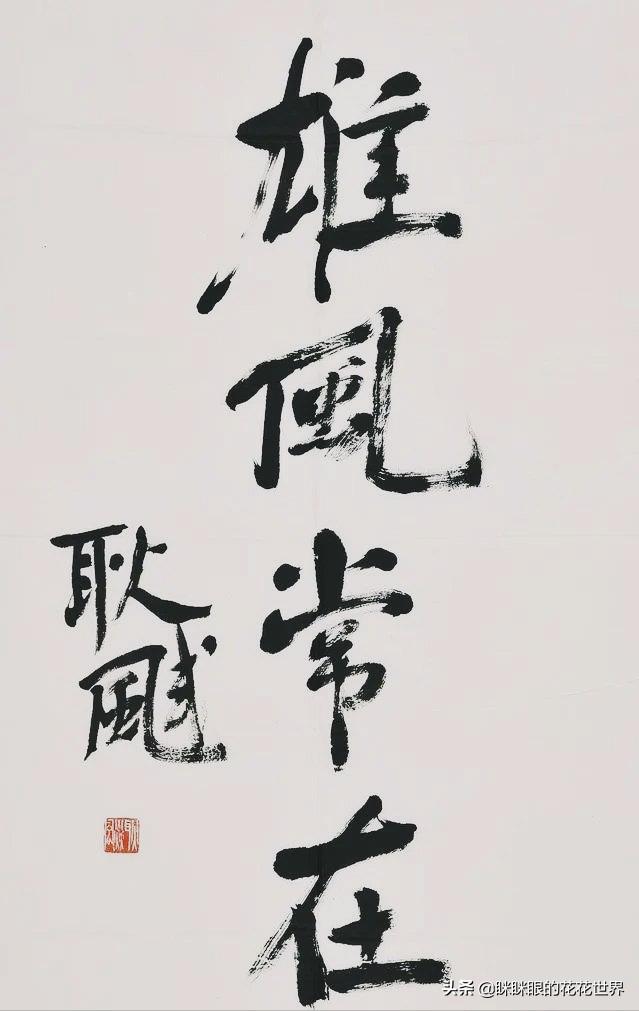 雄風常在
耿飚
头条 @眯眯眼的花花世界